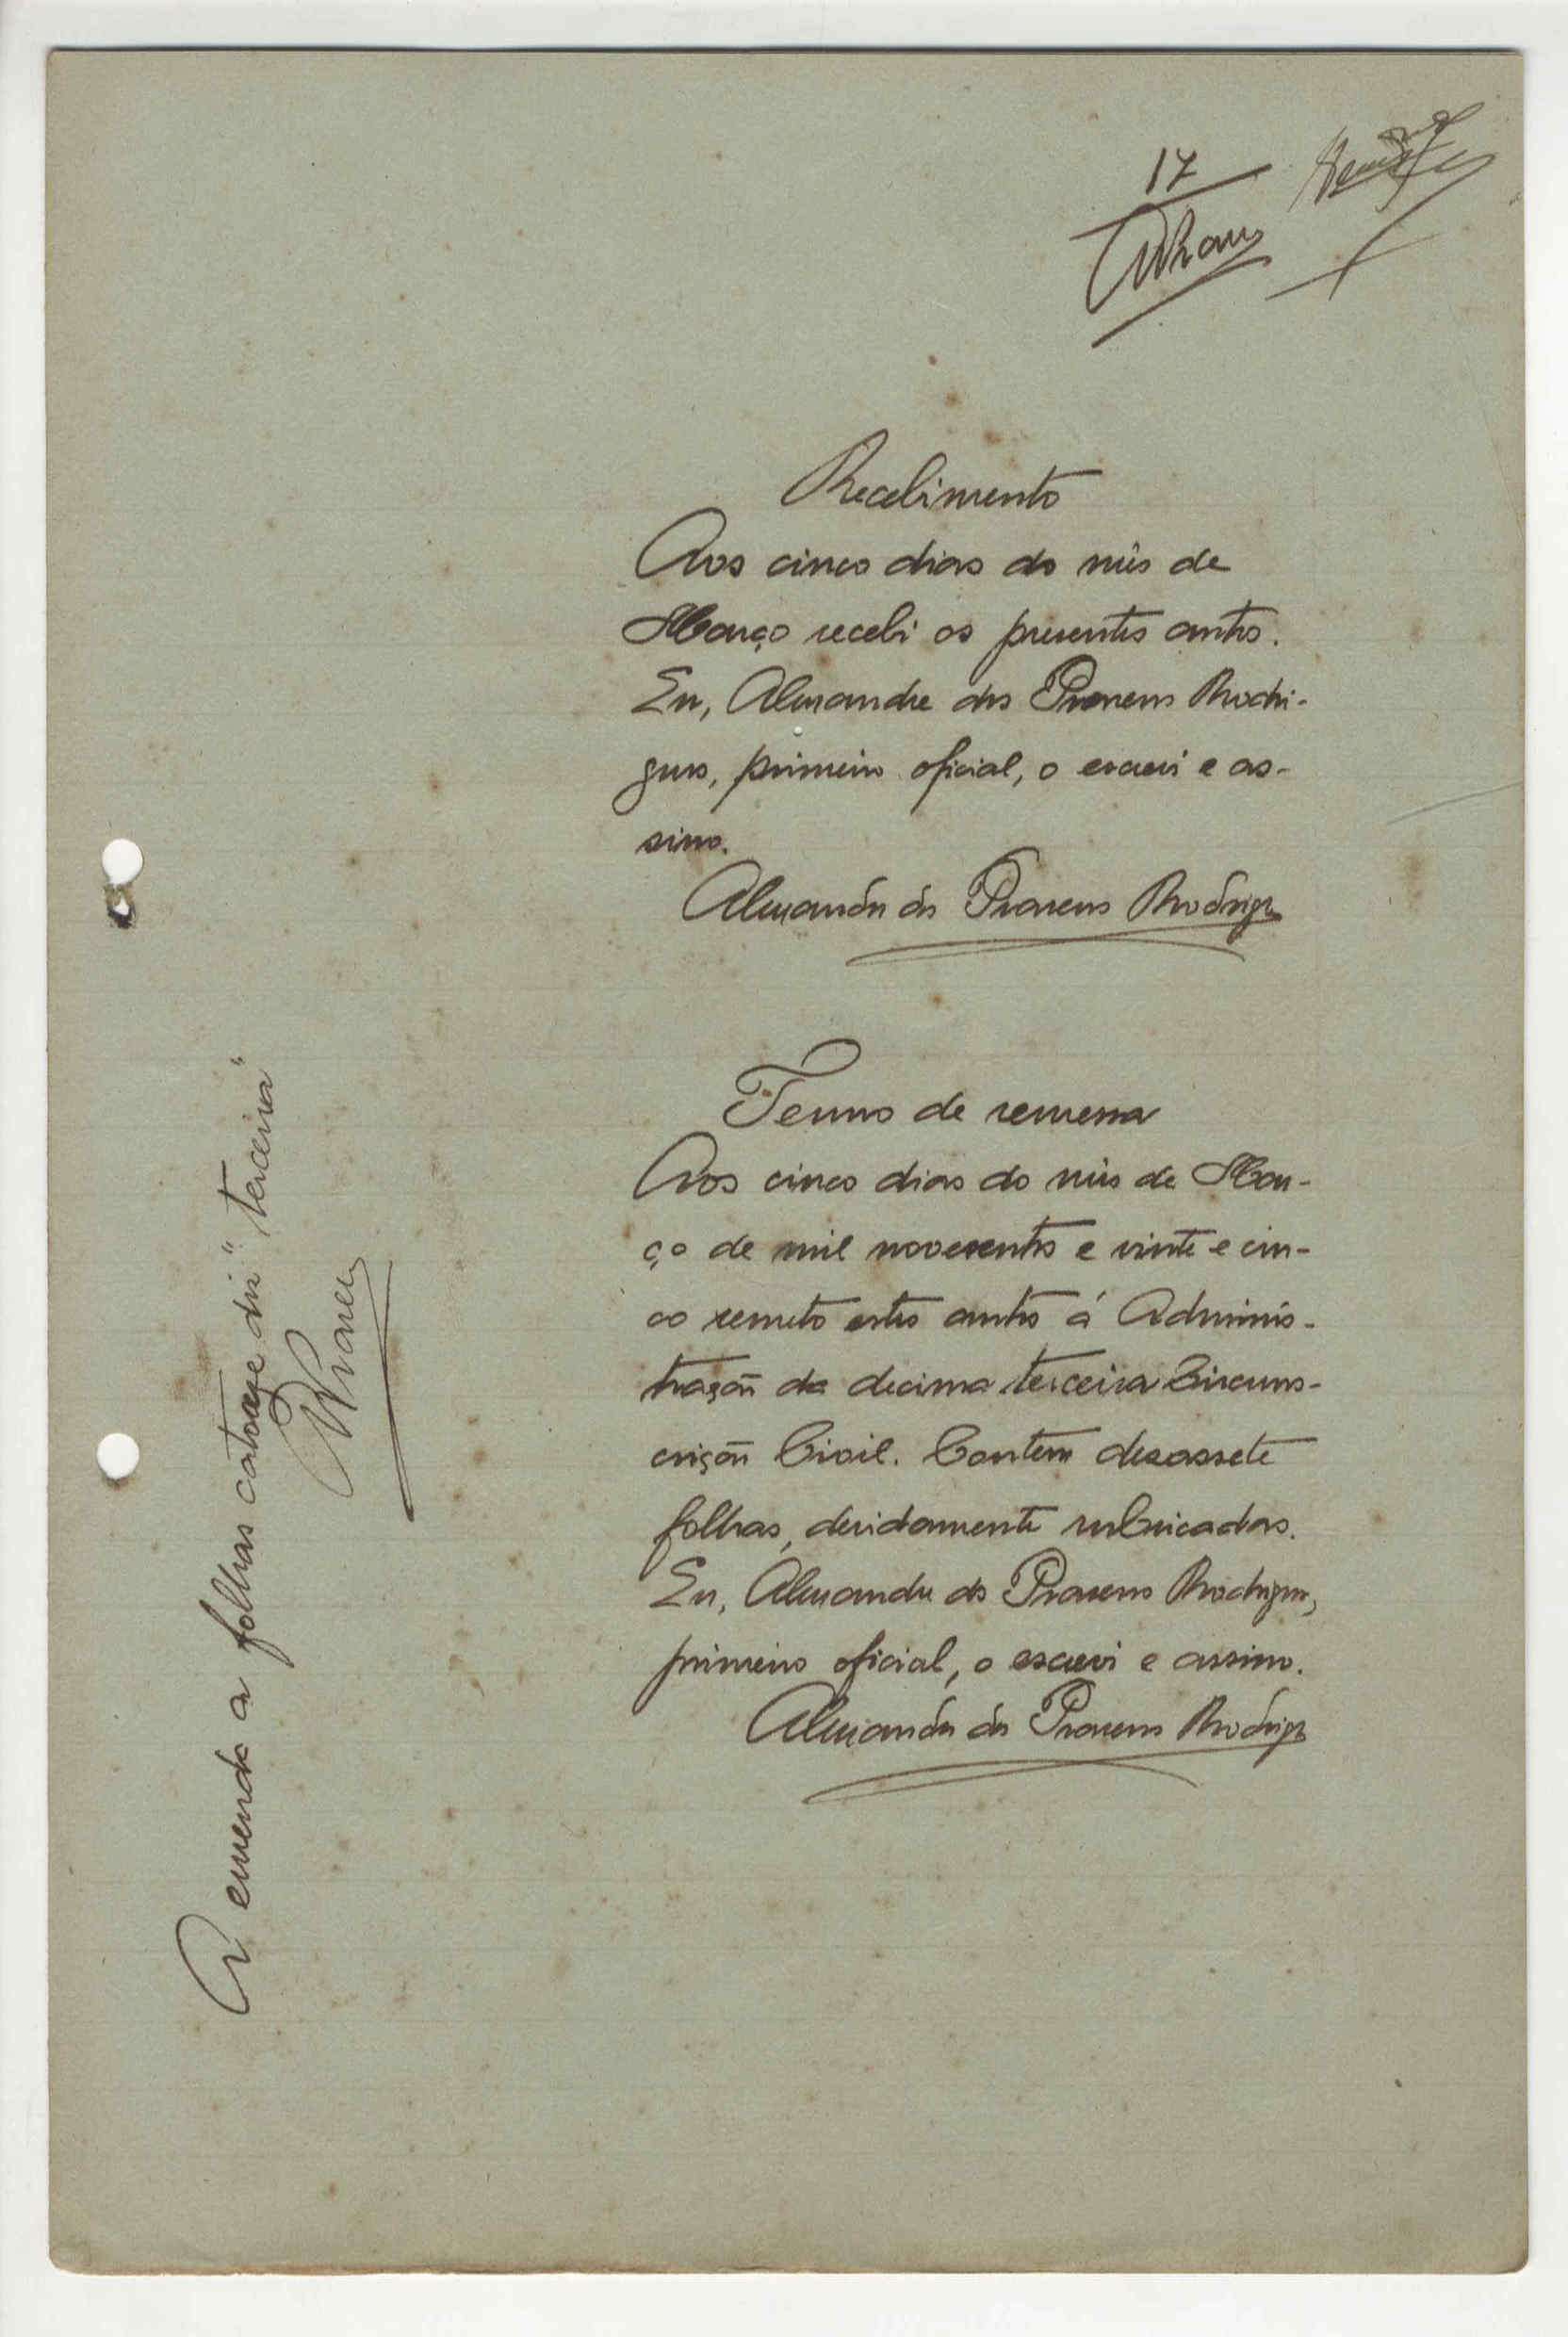 17
Recebimento
Aos cinco dias do mês de
Março recebi os presentes autos.
Eu, Alexandre dos Prazeres Rodri-
gues, primeiro oficial, o escrevi e as-
sino.
Alexandre dos Prazeres Rodrigues
Termo de remessa
Aos cinco dias do mês de Mar-
ço de mil novecentos e vinte e cin-
co remeto estes autos á Adminis-
tração da decima terceira Circuns-
crição Civil. Contem desassete
folhas, devidamente rubricadas.
Eu, Alexandre dos Prazeres Rodrigues,
primeiro oficial, o escrevi e assino.
Alexandre dos Prazeres Rodrigues
A emenda a folhas catorze diz "terceira"